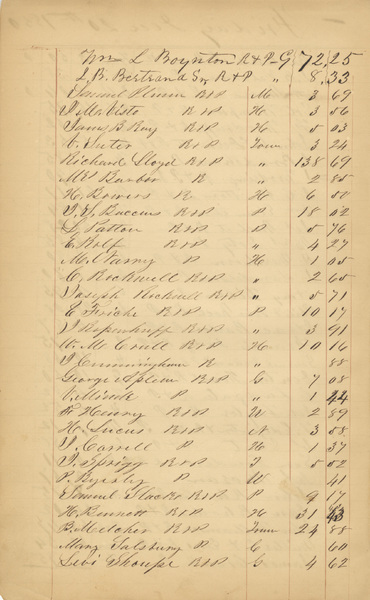 Wm L Boynton R & P - G 72,25
L. B. Bertrand Sr R & P " 8.33
Samuel Plumm R & P M 3 69
J Mc Visto R & P H 3 56
James B. Ray R & P H 5 03
V. Suter R & P Town 3 24
Richard Lloyd R & P " 138 69
Barber R " 2 85
H. Bowers R H 6 50
Baccus R & P P 18 02
L. Patton R & P P 5 76
E. Rolf R & P " 4 27
P H 1 05
C. Rockwell R & P " 2 65
Joseph Rockwell R & P " 5 71
E Fricke R & P P 10 17
R & P " 3 91
R & P H 10 16
J Cunningham R " 88
George Spleen R & P C 7 08
V. P " 1 44
F. Henry R & P W 2 89
H. Lucus R & P N 3 58
J. Correll P H 1 37
J. Sprigg R & P T 5 52
P. Byerly P W 41
Samuel Slack R & P P 9 17
H. Kennett R & P H 31 43
B. Melcher R & P Town 24 88
Mary Salsbury P C 60
Levi Shoupe R & P C 4 62